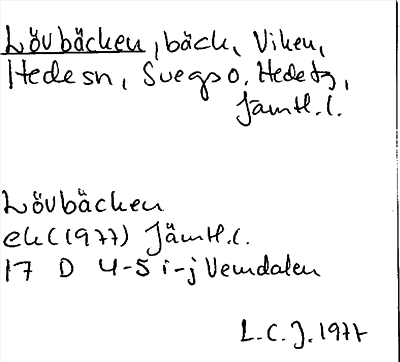 Lövbäcken, bäck, Viken,
Hede sn, Svegs o. Hede tg,
Jämtl.l.
Lövbäcken
ek (1977) Jämtl.l.
17 D 4-5 i-j Vemdalen
L.C.J. 1977